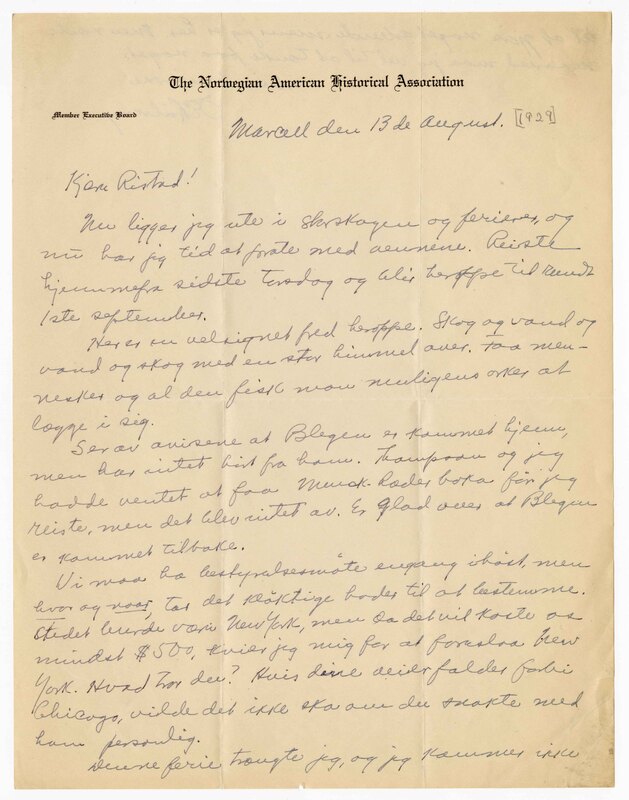 The Norwegian American Historical Association
Member Executive Board
Marcell den 13de August. [1929]
Kjære Ristad!
Nu ligger jeg ute i Storskogen og ferierer, og
nu har jeg tid at prate med vennene. Reiste
hjemmefra sidste torsdag og blir heroppe til rundt
1ste september.
Her er en velsignet fred heroppe. Skog og vand og
vand og skog med en stor himmel over. Faa men-
nesker og al den fisk man muligens orker at
lægge i sig.
Ser av avisene at Blegen er kommet hjem,
men har intet hørt fra ham. Thompson og jeg
hadde ventet at faa boka før jeg
reiste, men det blev intet av. Er glad over at Blegen
er kommet tilbake.
Vi maa ha bestyrelsesmøte engang ihøst, men
hvor og naar, tar det kløktige hoder til at bestemme.
Stedet burde være New York, men da det vil koste os
mindst $500, kvier jeg mig for at foreslaa New
York. Hvad tror du? Hvis dine veier falder forbi
Chicago, vilde det ikke ska om du snakte med
ham personlig.
Denne ferie trængte jeg, og jeg kommer ikke